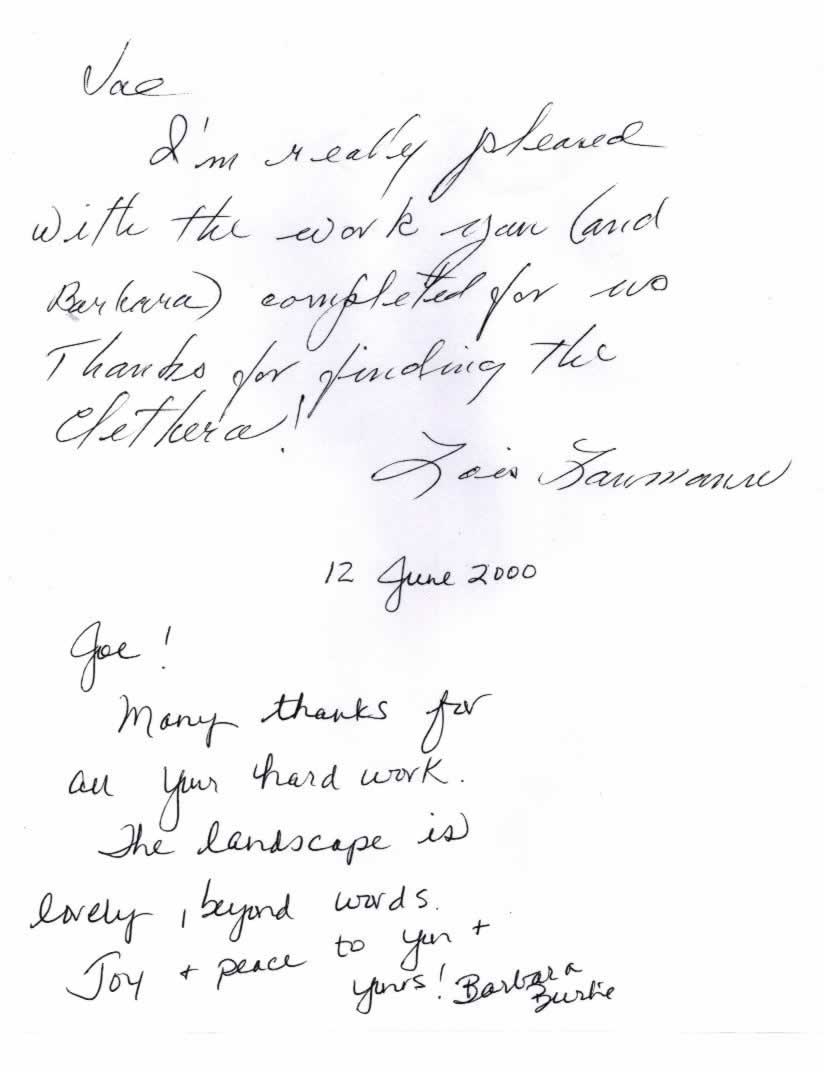 Joe
I'm really pleased
with the work you (and
Barbara) completed for us
Thanks for finding the
Clethera!
Lois
12 June 2000
Joe!
Many thanks for
all your hard work.
The landscape is
lovely, beyond words.
Joy + peace to you +
yours! Barbara